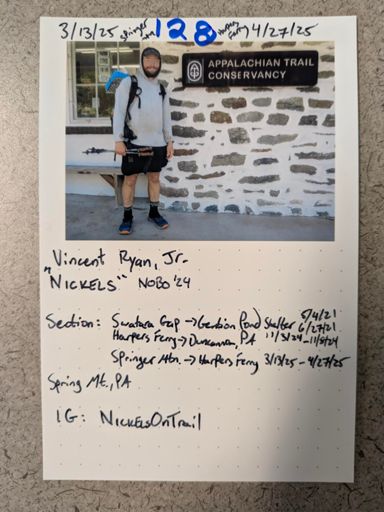 3/13/25 Springer Mtn. 128 Harpers Ferry 4/27/25
APPALACHIAN TRAIL
CONSERVANCY
Vincent Ryan, Jr.
"NICKELS" NOBO '24
5/4/21
Section: Swatara Gap → Gertian Pond Shelter 6/27/21
Harpers Ferry → Duncannon, PA 11/3/24 - 11/8/24
Springer Mtn. → Harpers Ferry 3/13/25 - 4/27/25
Spring Mt., PA
IG: NICKELSONTRAIL